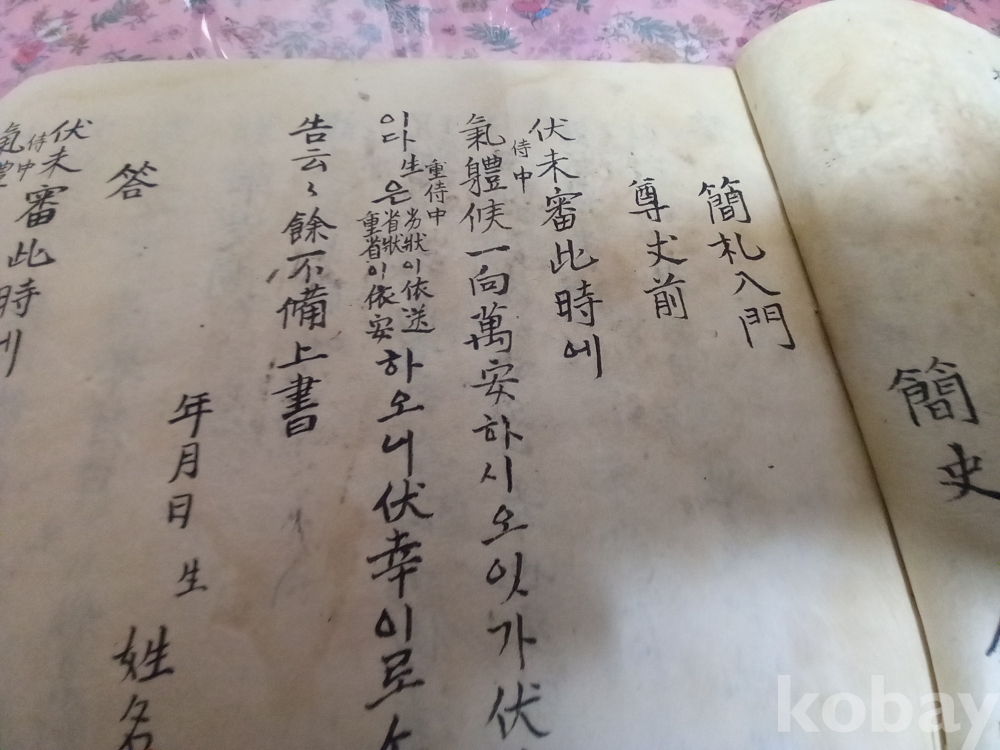 簡史
簡札入門
尊丈前
伏未審此時에
侍中
氣體候一向萬安하시오잇가伏
重侍中
이다生은
劣狀이依送
省狀
重省이依安
하오니伏幸이로
告云〻餘不備上書
年月日 生
姓名
答
伏未審此時에
侍中
氣體
kobay